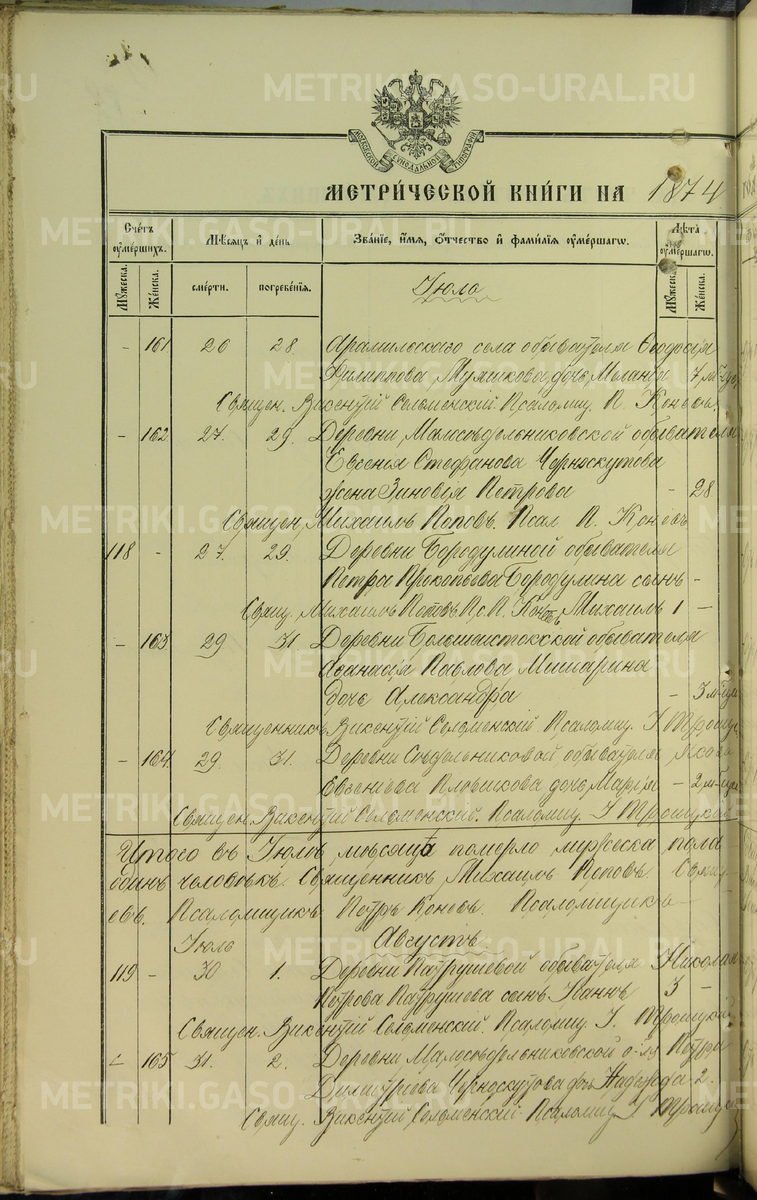 METRIKI.GASO-URAL.RU
МЕТРИ́ЧЕСКОЙ КНИ́ГИ НА 1874
Сче́тъ ᲂу҆ме́ршихъ.
Мѣсяцъ и҆ де́нь
Зва́нїе, и҆́мѧ, ѻ҆́тчество и҆ фами́лїѧ ᲂу҆ме́ршагѡ.
Лѣ́та ᲂу҆ме́ршагѡ.
Мꙋ́жеска.
Же́нска.
сме́рти.
погребе́нїѧ.
Мꙋ́жеска
Же́нска.
Іюль
- 161 26 28 Арамильскаго села обывателя Ѳеодосія
Филиппова дочь Меланія 7 м-цев
Священ. Викентій Селменскій Псаломщ. П. Коневъ
- 162 27. 29. Деревни Малосѣдельниковской обывателя
Евгенія Стефанова Черноскутова
жена Зиновія Петрова - 28
Священ. Михаилъ Поповъ. Псал П. Коневъ
118 - 27. 29. Деревни Бородулиной обывателя
Петра Прокопьева Бородулина сынъ -
Свящ. Михаилъ Поповъ. Пс. П. Коневъ Михаилъ 1 -
- 163 29 31 Деревни Большаистокской обывателя
Аѳанасія Павлова Мишарина
дочь Александра - 3 м-цев
Священникъ Викентій Селменскій Псаломщ. І Троицк
- 164. 29. 31. Деревни Сѣдельниковой обыватель Якова
Евгеніева дочь Марія - 2 м-цев
Священ. Викентій Селменскій. Псаломщ. І Троицкій
Итого въ Іюлѣ мѣсяцѣ померло мужеска пола
одинъ человѣкъ. Священникъ Михаилъ Поповъ. Свящ
евъ. Псаломщикъ Петръ Коневъ. Псаломщикъ
Іюль Августъ
119 - 30 1. Деревни Патрушевой обывателя Николая
Петрова Патрушева сынъ Іоаннъ 3 -
Священ. Викентій Селменскій. Псаломщ. І. Троицкій
- 165 31. 2. Деревни Малосѣдельниковской Петра
Димитріева Черноскутова дочь Надежда 2.
Свящ. Викентій Селменскій. Псаломщ. І Троицк